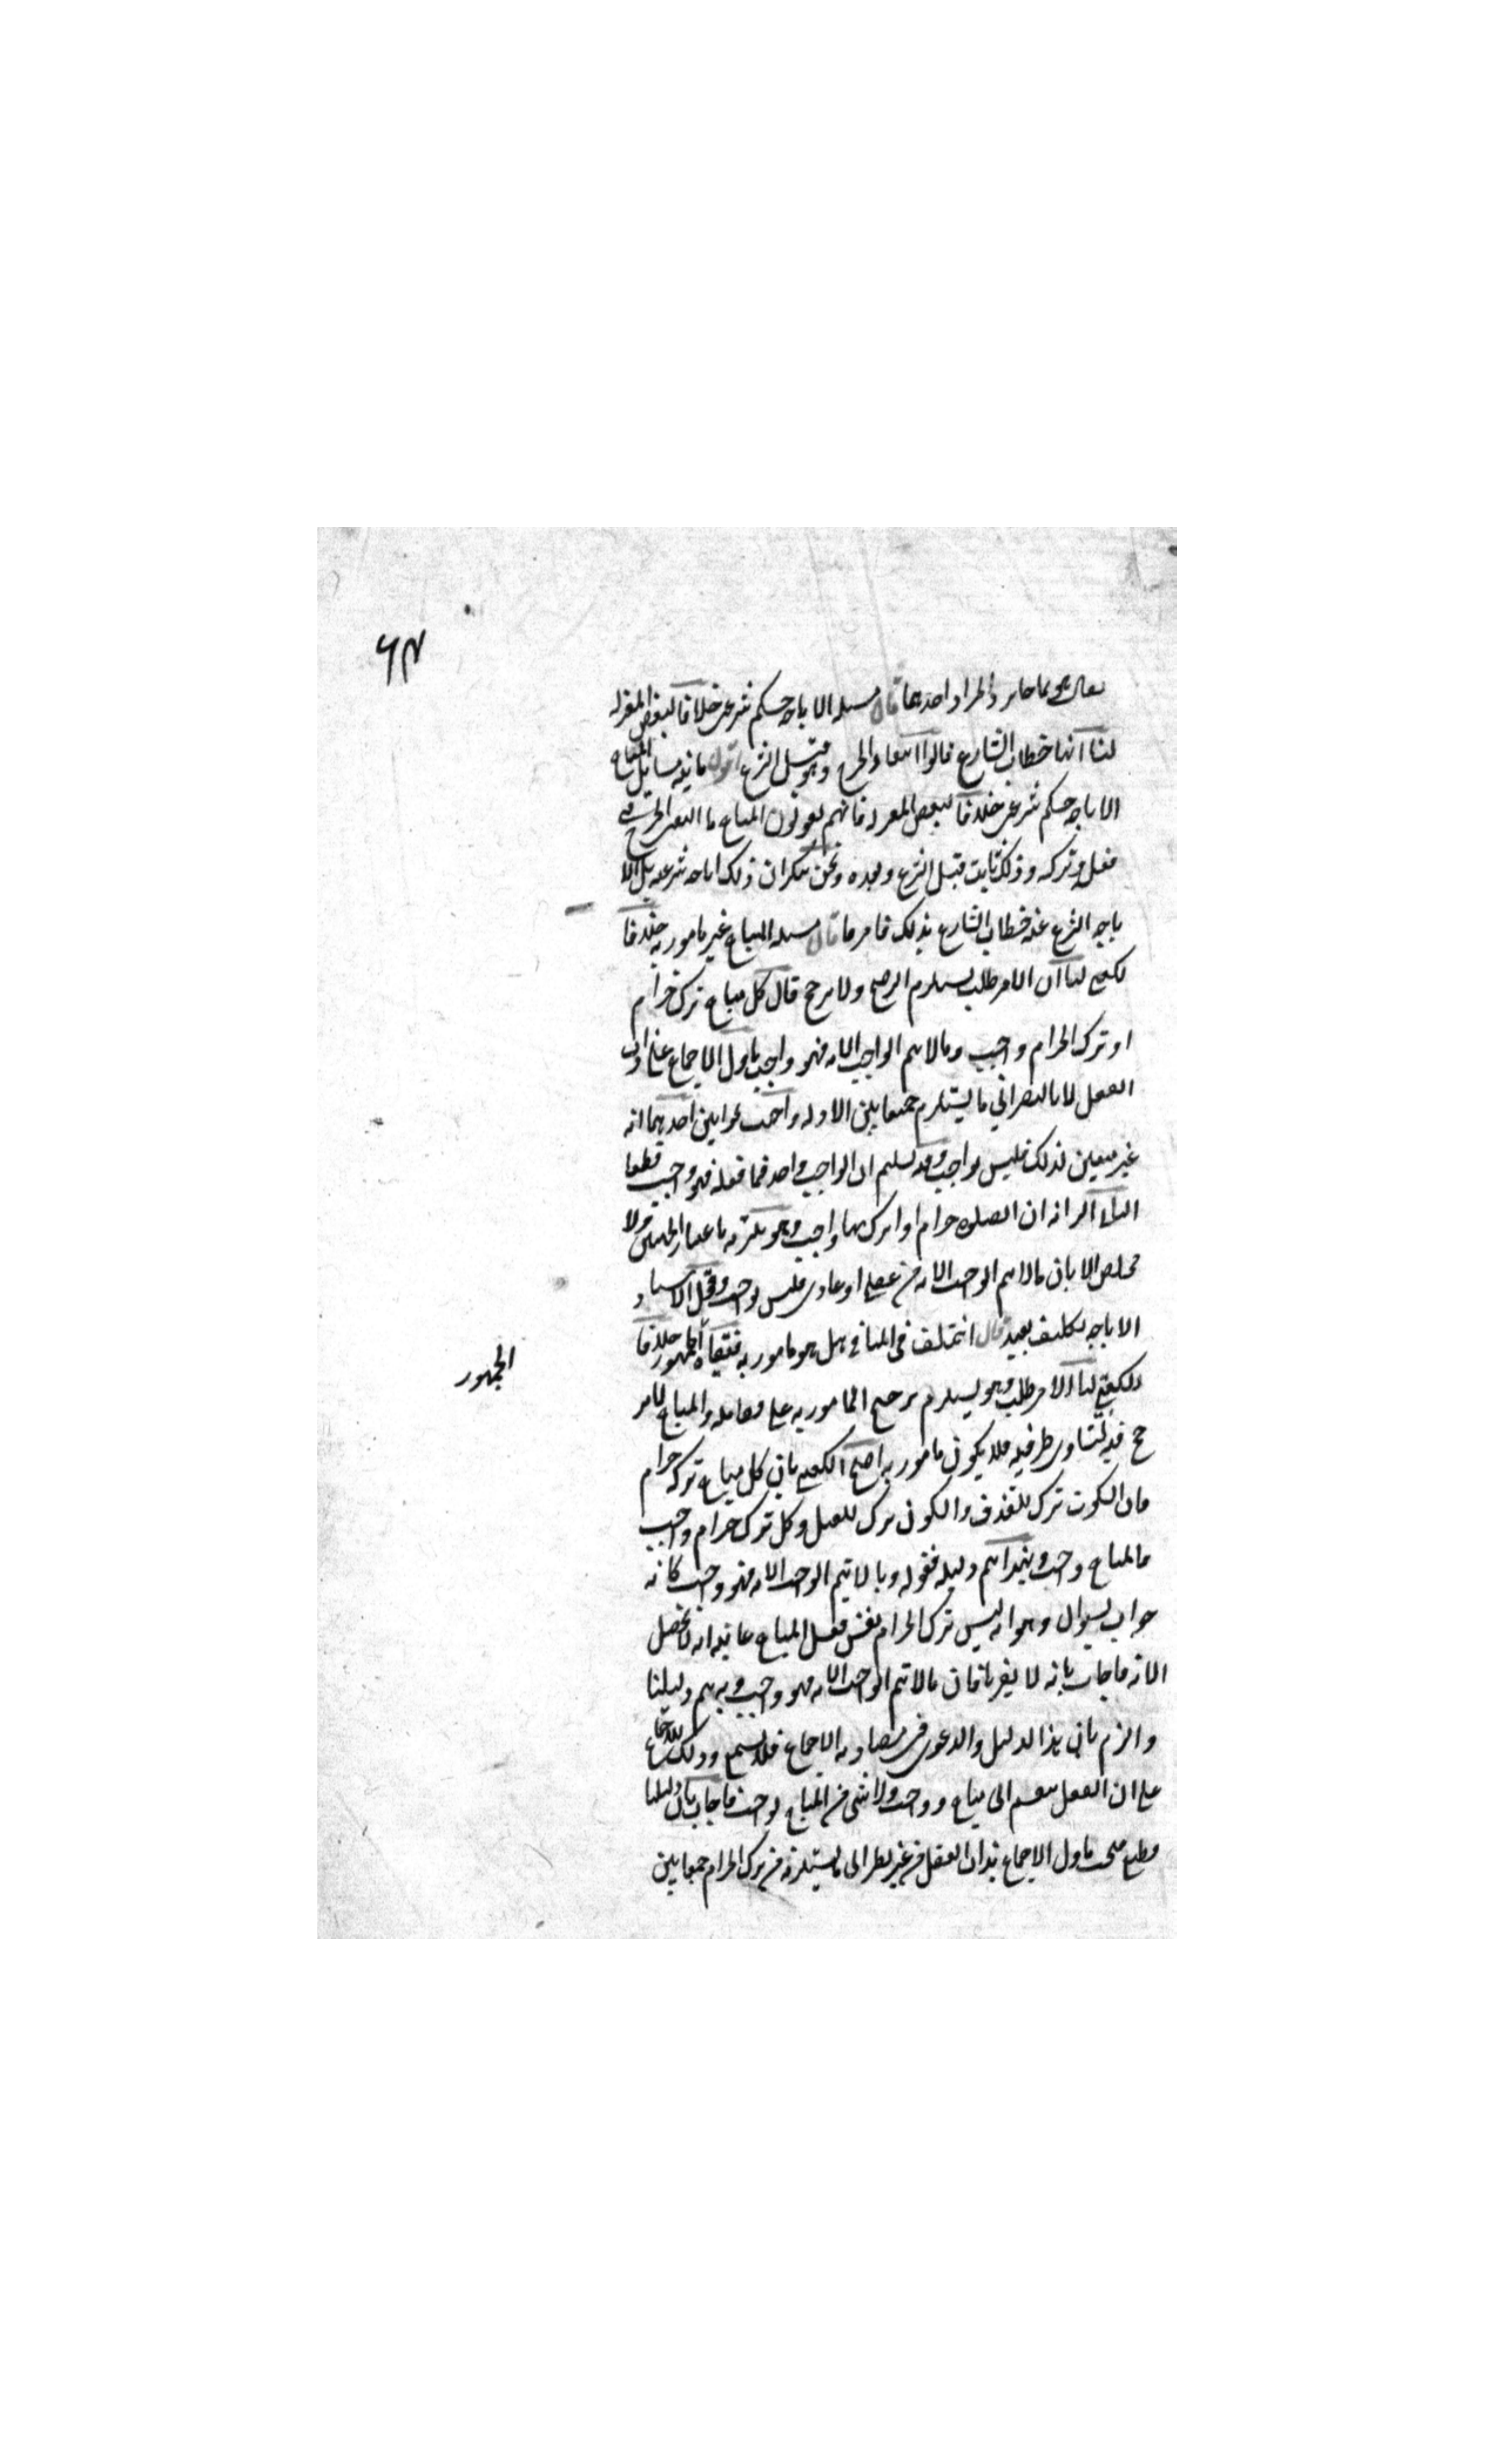 ٦٣
يقال هما جائز والمراد احدهما قال مسئله الاباحه حكم شرعى خلافا لبعض المعتزله
لنا انها خطاب الشارع قالوا انتفاء الحرج وهو قبل الشرع اقول ثانيه مسايل المباح
الاباحه حكم شرعى خلافا لبعض المعتزله فانهم يقولون المباح ما انتفى الحرج فى
فعله وتركه وذلك ثابت قبل الشرع وبعده ونحن ننكر ان ذلك اباحه شرعيه بل الا
باحه الشرع عندنا خطاب الشارع بذلك فافترقا قال مسئله المباح غير مامور به خلافا
للكعبى لنا ان الامر طلب يستلزم الترجيح ولا مرجح قال كل مباح ترك حرام
او ترك الحرام واجب وما لا يتم الواجب الا به فهو واجب وتأول الاجماع على ذات
الفعل لا بالنظر الى ما يستلزم جمعا بين الادله واجيب بجوابين احدهما انه
غير متعين لذلك فليس بواجب وفيه تسليم ان الواجب واحد فما فعله فهو واجب قطعا
الثانى الزامه ان الصلوه حرام اذا ترك بها واجب وهو يلتزمه باعتبار الجهتين ولا
مخلص الا بان ما لا يتم الواجب الا به من عقلى او عادى فليس بواجب وقول الاستاد
الاباحه تكليف بعيد قال اختلف فى المباح هل هو مامور به فنفاه الجمهور خلافا
الجمهور
للكعبى لنا الامر طلب وهو يستلزم ترجيح المامور به على مقابله والمباح لا تر
جيح فيه لتساوى طرفيه فلا يكون مامورا به احتج الكعبى بان كل مباح ترك حرام
فان السكوت ترك للقذف والسكون ترك للقتل وكل ترك حرام واجب
فالمباح واجب وبهذا تم دليله فقوله وما لا يتم الواجب الا به فهو واجب كانه
جواب لسؤال وهو انه ليس ترك الحرام نفس فعل المباح غايته انه لا يحصل
الا به فاجاب بانه لا يضرنا فان ما لا يتم الواجب الا به فهو واجب وبه يتم دليلنا
والزم بان هذا الدليل والدعوى فى مصادمه الاجماع فلا يسمع وذلك للاجماع
على ان الفعل ينقسم الى مباح وواجب ولا شى من المباح بواجب فاجاب بان دليلنا
قطعى فيجب تاويل الاجماع بذات الفعل من غير نظر الى ما يستلزمه من ترك الحرام جمعا بين